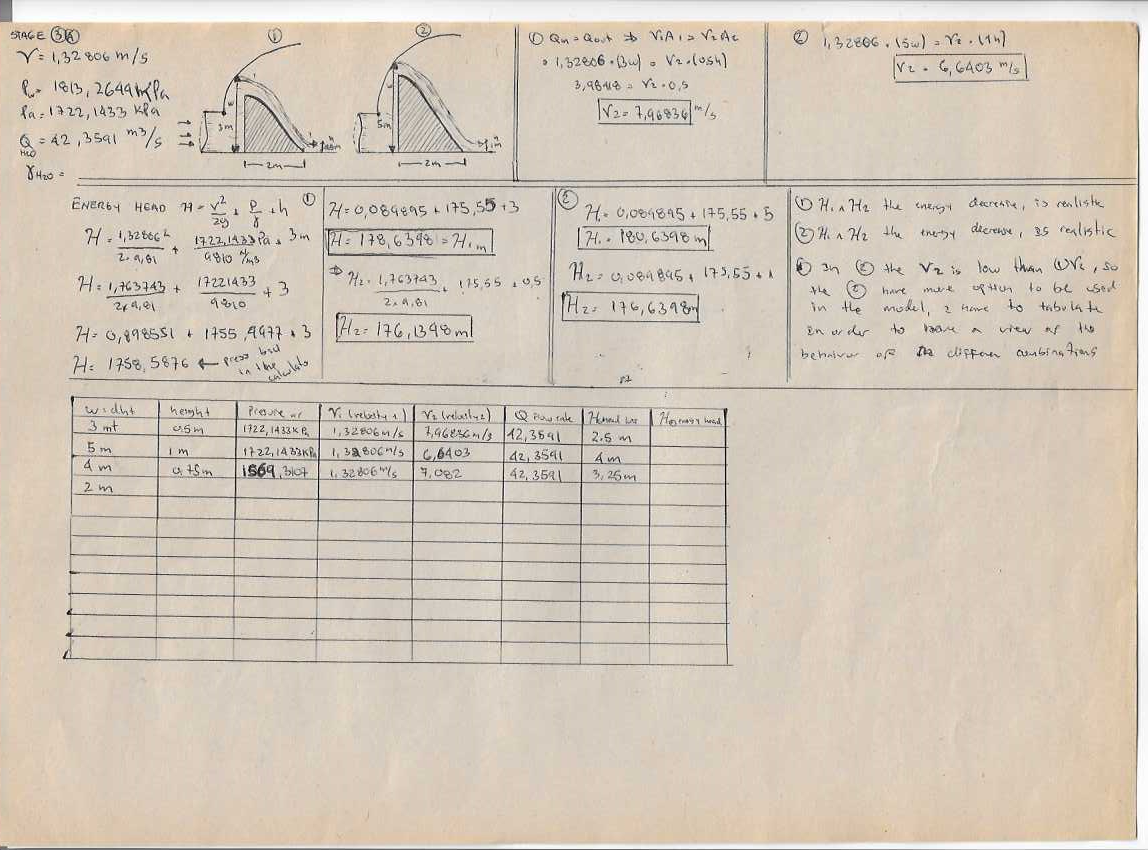 STAGE 3A
V = 1,32806 m/s
Pw = 1813,2644 KPa
Pa = 1722,1433 KPa
Q = 42,3591 m³/s
H2O
γH2O =
①
3m
2m
②
5m
1m
2m
① Qin = Qout ⇒ V1A1 = V2A2
= 1,32806 · (3w) = V2 · (0,5h)
3,98418 = V2 · 0,5
V2 = 7,96836 m/s
② 1,32806 · (5w) = V2 · (1h)
V2 = 6,6403 m/s
ENERGY HEAD H = V²/2g + P/γ + h ①
H = 1,32806²/2·9,81 + 1722,1433 Pa/9810 N/m3 + 3m
H = 1,763743/2x9,81 + 17221433/9810 + 3
H = 0,898551 + 1755,4977 + 3
H = 1758,5876 ← press bad
in the
calculate
H = 0,089895 + 175,55 + 3
H = 178,6398 = H1 m
⇒ H2 = 1,763743/2x9,81 + 175,55 + 0,5
H2 = 176,1398 m
② H1 = 0,089895 + 175,55 + 5
H1 = 180,6398 m
H2 = 0,089895 + 175,55 + 1
H2 = 176,6398 m
① H1 ∧ H2 the energy decrease, is realistic
② H1 ∧ H2 the energy decrease, is realistic
In ② the V2 is low than ① V2, so
the ② have more option to be used
in the model, I have to tabulate
in order to have a view of the
behavior of the differen combinations
width | height | Pressure air | V1 (velocity 1) | V2 (velocity 2) | Q Flow rate | H head loss | H energy head
3 mt | 0,5m | 1722,1433 KPa | 1,32806 m/s | 7,96836 m/s | 42,3591 | 2.5 m
5 m | 1 m | 1722,1433 KPa | 1,32806 m/s | 6,6403 | 42,3591 | 4 m
4 m | 0,75m | 1569,3107 | 1,32806 m/s | 7,082 | 42,3591 | 3,25m
2 m